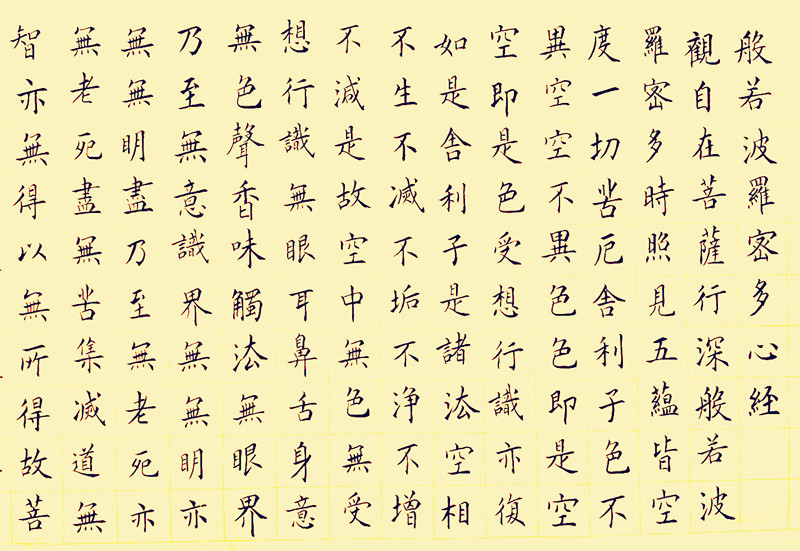 般若波羅密多心経
觀自在菩薩行深般若波
羅密多時照見五蘊皆空
度一切苦厄舍利子色不
異空空不異色色即是空
空即是色受想行識亦復
如是舍利子是諸法空相
不生不滅不垢不浄不增
不減是故空中無色無受
想行識無眼耳鼻舌身意
無色聲香味觸法無眼界
乃至無意識界無無明亦
無無明盡乃至無老死亦
無老死盡無苦集滅道無
智亦無得以無所得故菩